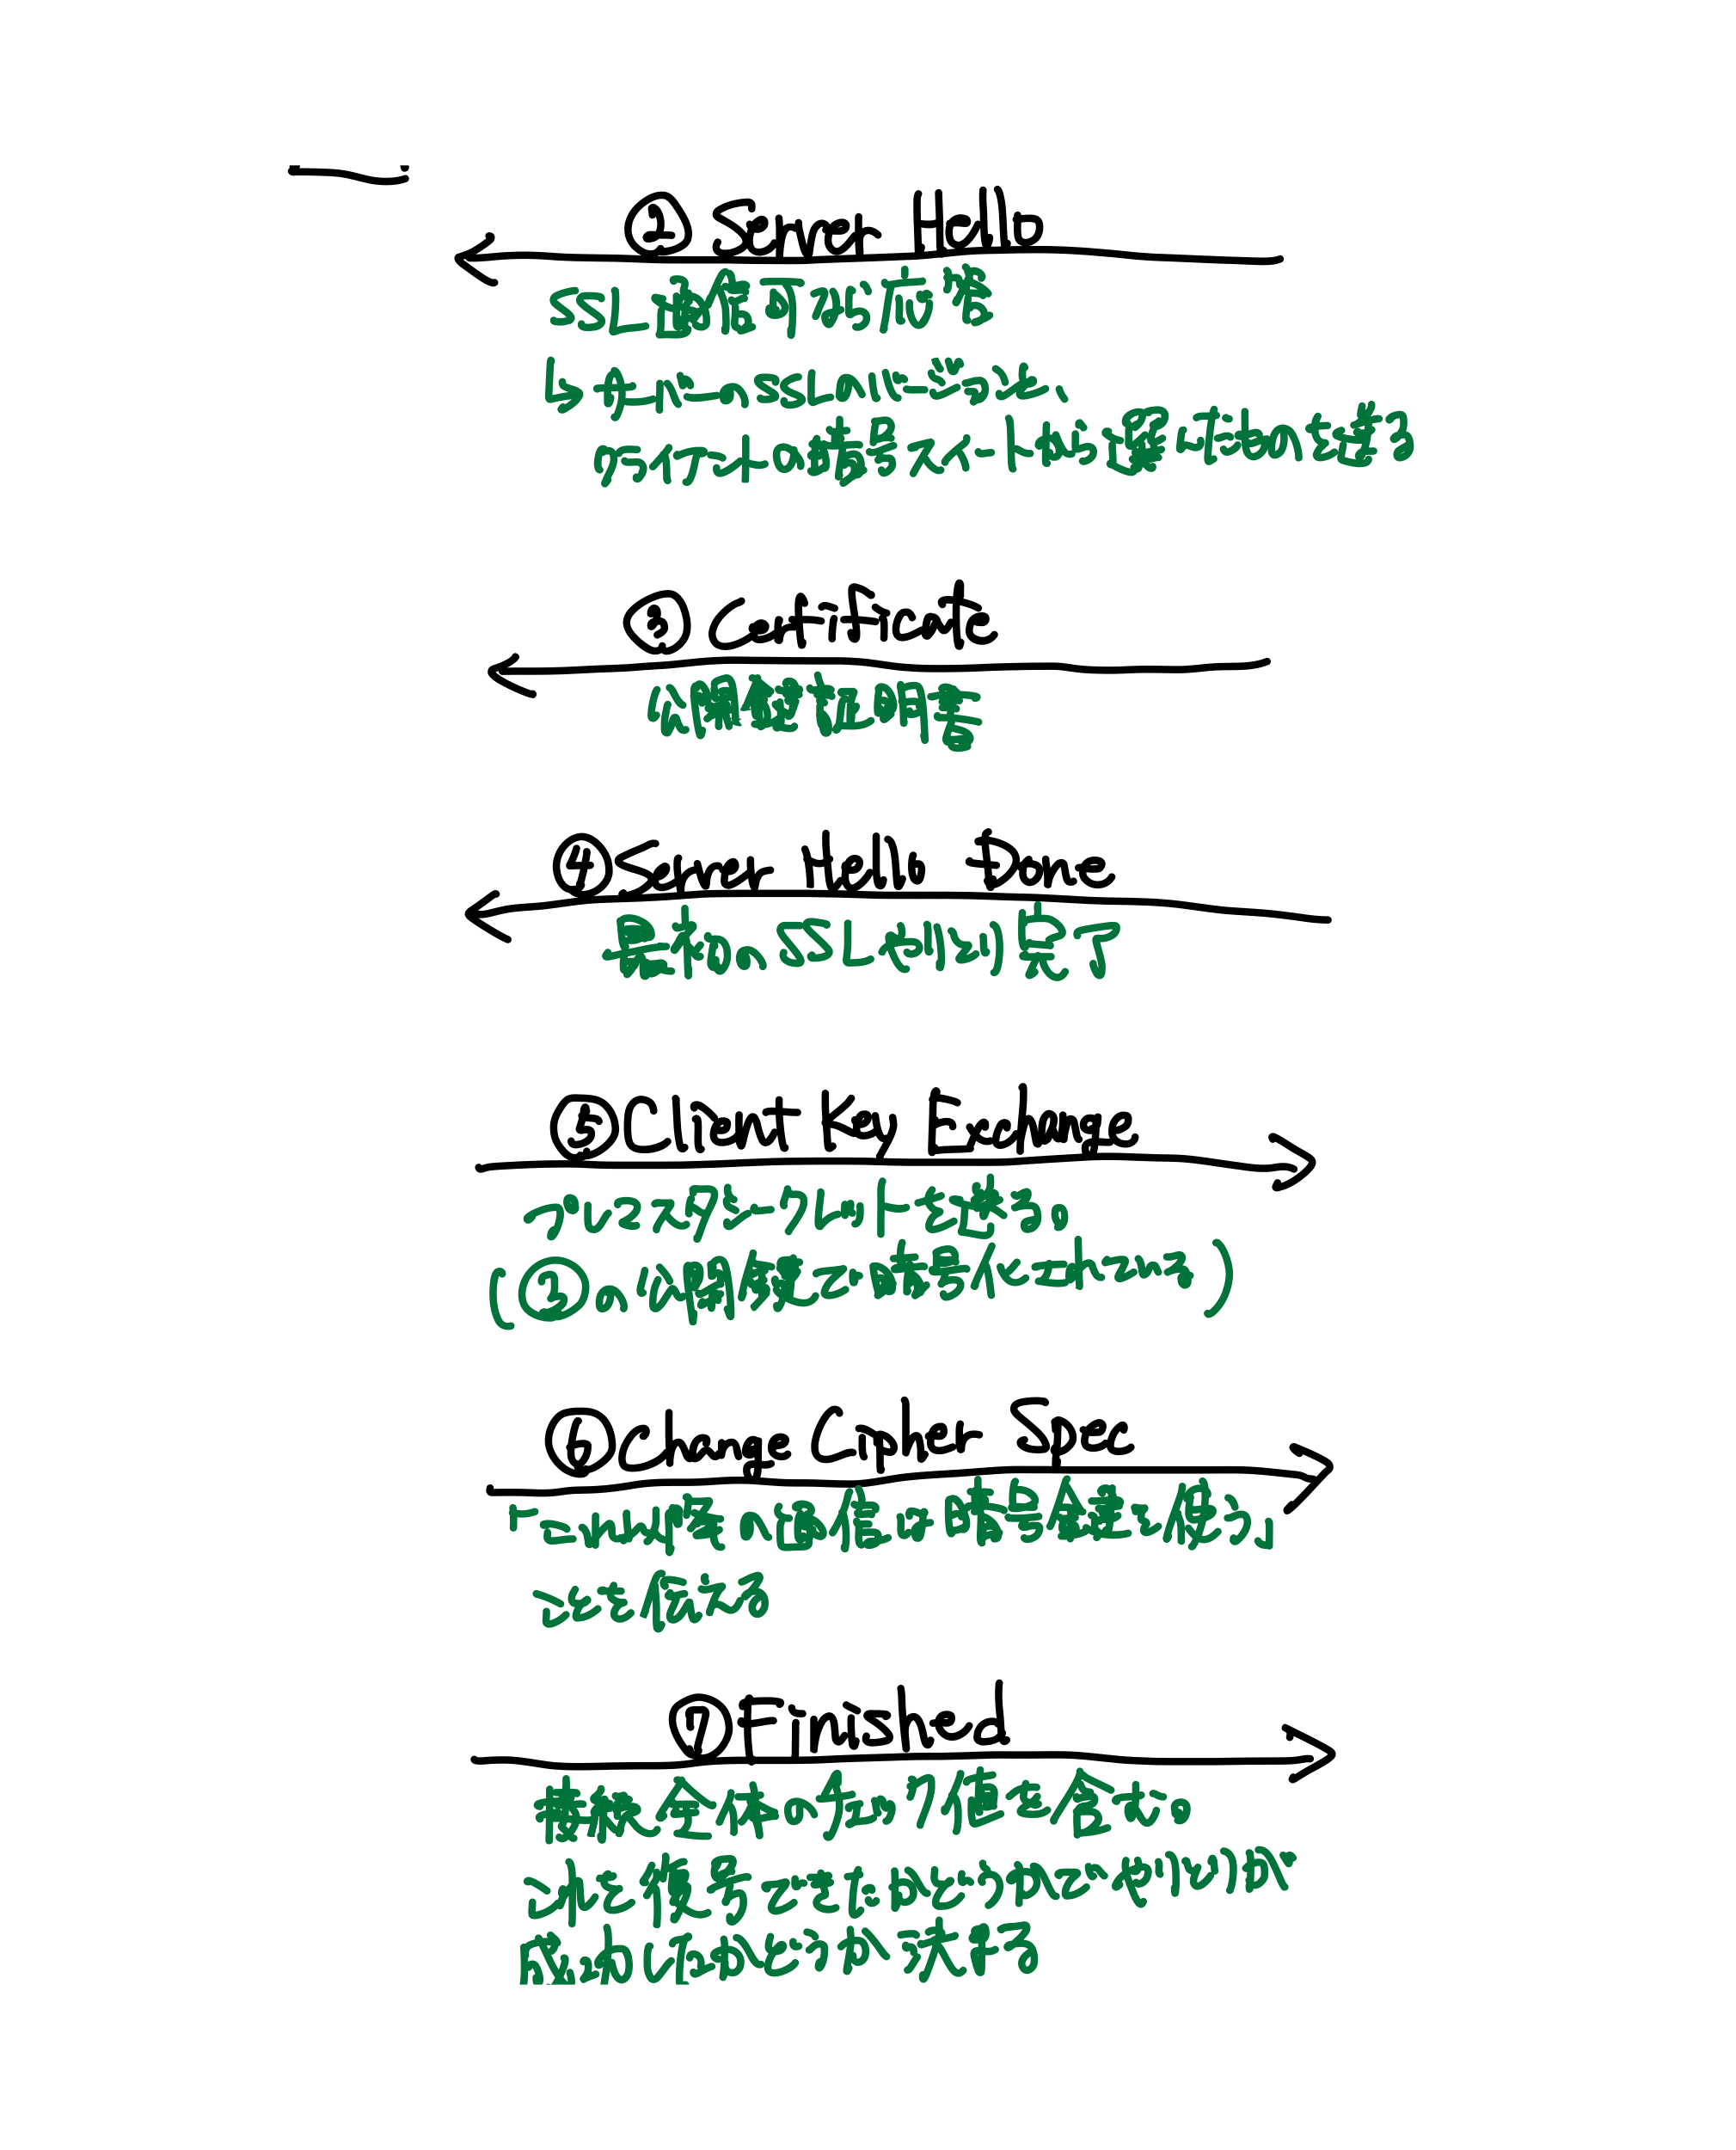 ② Server Hello
SSL通信可なら応答
↳ サーバーのSSLのバージョンと、
クライアントの暗号スイートから選んだものを送る
③ Certificate
公開鍵証明書
④ Server Hello Done
最初のSSLネゴシエ終了
⑤ Client Key Exchange
プリマスターシークレットを送る。
(③の公開鍵で暗号化されている)
⑥ Change Cipher Spec
「これ以降の通信は暗号鍵を使う」
ことを伝える
⑦ Finished
接続全体のチェック値を含む。
これを復号できたかどうかでやりとりが
成功したかどうか決まる